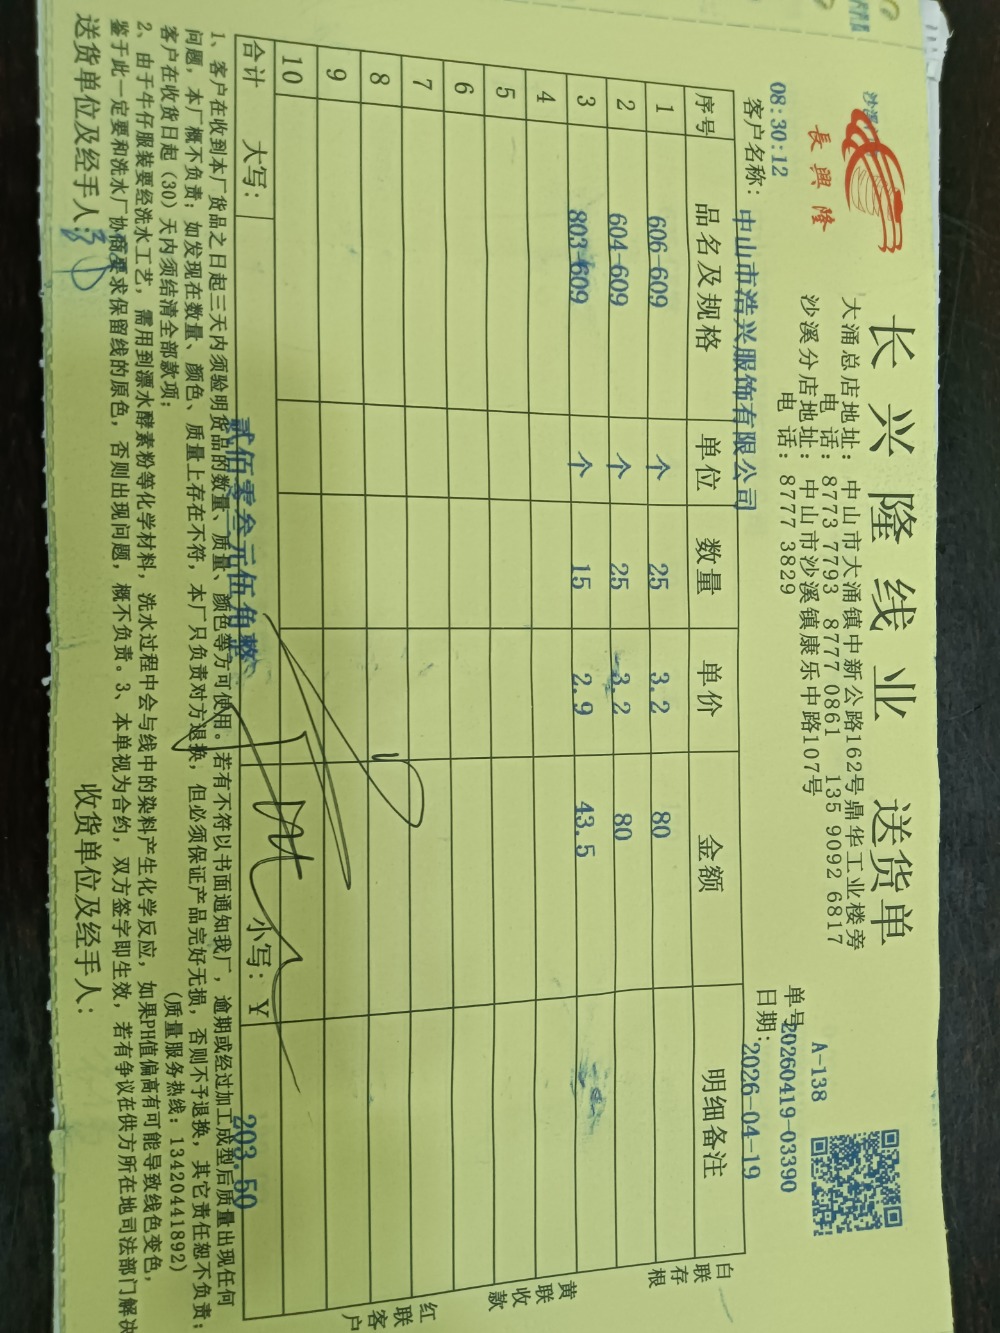 長興隆
长兴隆线业 送货单
大涌总店地址：中山市大涌镇中新公路162号鼎华工业楼旁
电 话：8773 7793 8777 0861 135 9092 6817
沙溪分店地址：中山市沙溪镇康乐中路107号
电 话：8777 3829
A-138
单号：20260419-03390
08:30:12
客户名称：中山市浩兴服饰有限公司
日期：2026-04-19
序号 品名及规格 单位 数量 单价 金额 明细备注
1 606-609 个 25 3.2 80
2 604-609 个 25 3.2 80
3 803-609 个 15 2.9 43.5
4
5
6
7
8
9
10
合计 大写：贰佰零叁元伍角整 小写：¥ 203.50
白联存根
黄联收款
红联客户
1、客户在收到本厂货品之日起三天内须验明货品的数量、质量、颜色等方可使用。若有不符以书面通知我厂，逾期或经过加工成型后质量出现任何
问题，本厂概不负责；如发现在数量、颜色、质量上存在不符，本厂只负责对方退换，但必须保证产品完好无损，否则不予退换，其它责任恕不负责；
客户在收货日起（30）天内须结清全部款项； (质量服务热线：13420441892)
2、由于牛仔服装要经洗水工艺，需用到漂水酵素粉等化学材料，洗水过程中会与线中的染料产生化学反应，如果PH值偏高有可能导致线色变色，
鉴于此一定要和洗水厂协商要求保留线的原色，否则出现问题，概不负责。3、本单视为合约，双方签字即生效，若有争议在供方所在地司法部门解决
送货单位及经手人： 收货单位及经手人：